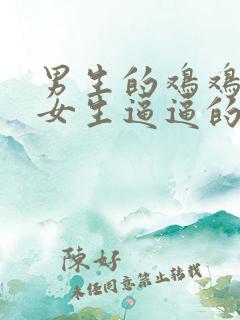 男生的鸡鸡
女生逼逼的
陳好
未经同意禁止转载